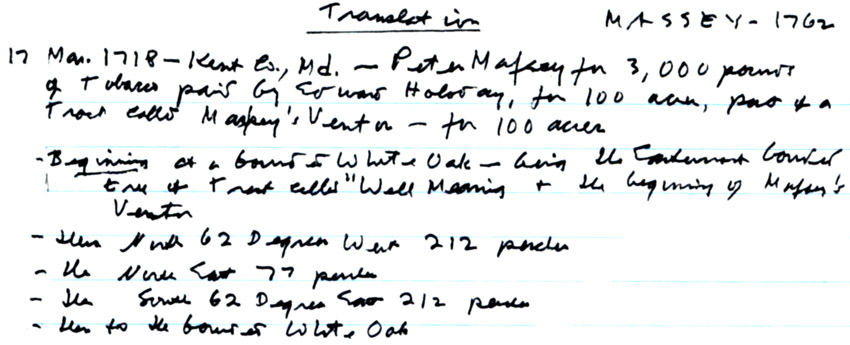 Translation
MASSEY - 1762
17 Mar. 1718 - Kent Co., Md. - Peter Maſsey for 3,000 pounds
of Tobacco paid by Edward Holoday, for 100 acres, part of a
Tract called Maſsey's Ventor - for 100 acres
- Beginning at a bounded White Oak - being the bounded
tree of Tract called "Well Meaning & the beginning of Maſsey's
Ventor
- then North 62 Degrees West 212 perches
- the North East 77 perches
- the South 62 Degrees East 212 perches
- then to the bounded White Oak